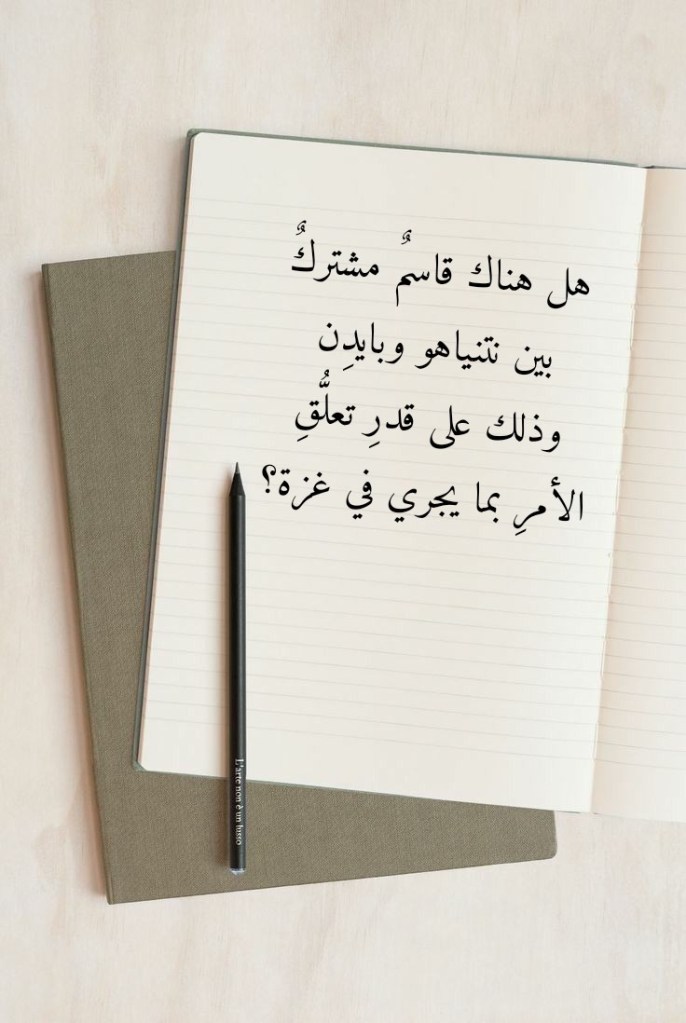 هل هناك قاسمٌ مشتركٌ
بين نتنياهو وبايدِن
وذلك على قدرِ تعلُّقِ
الأمرِ بما يجري في غزة؟
L'arte non è un lusso